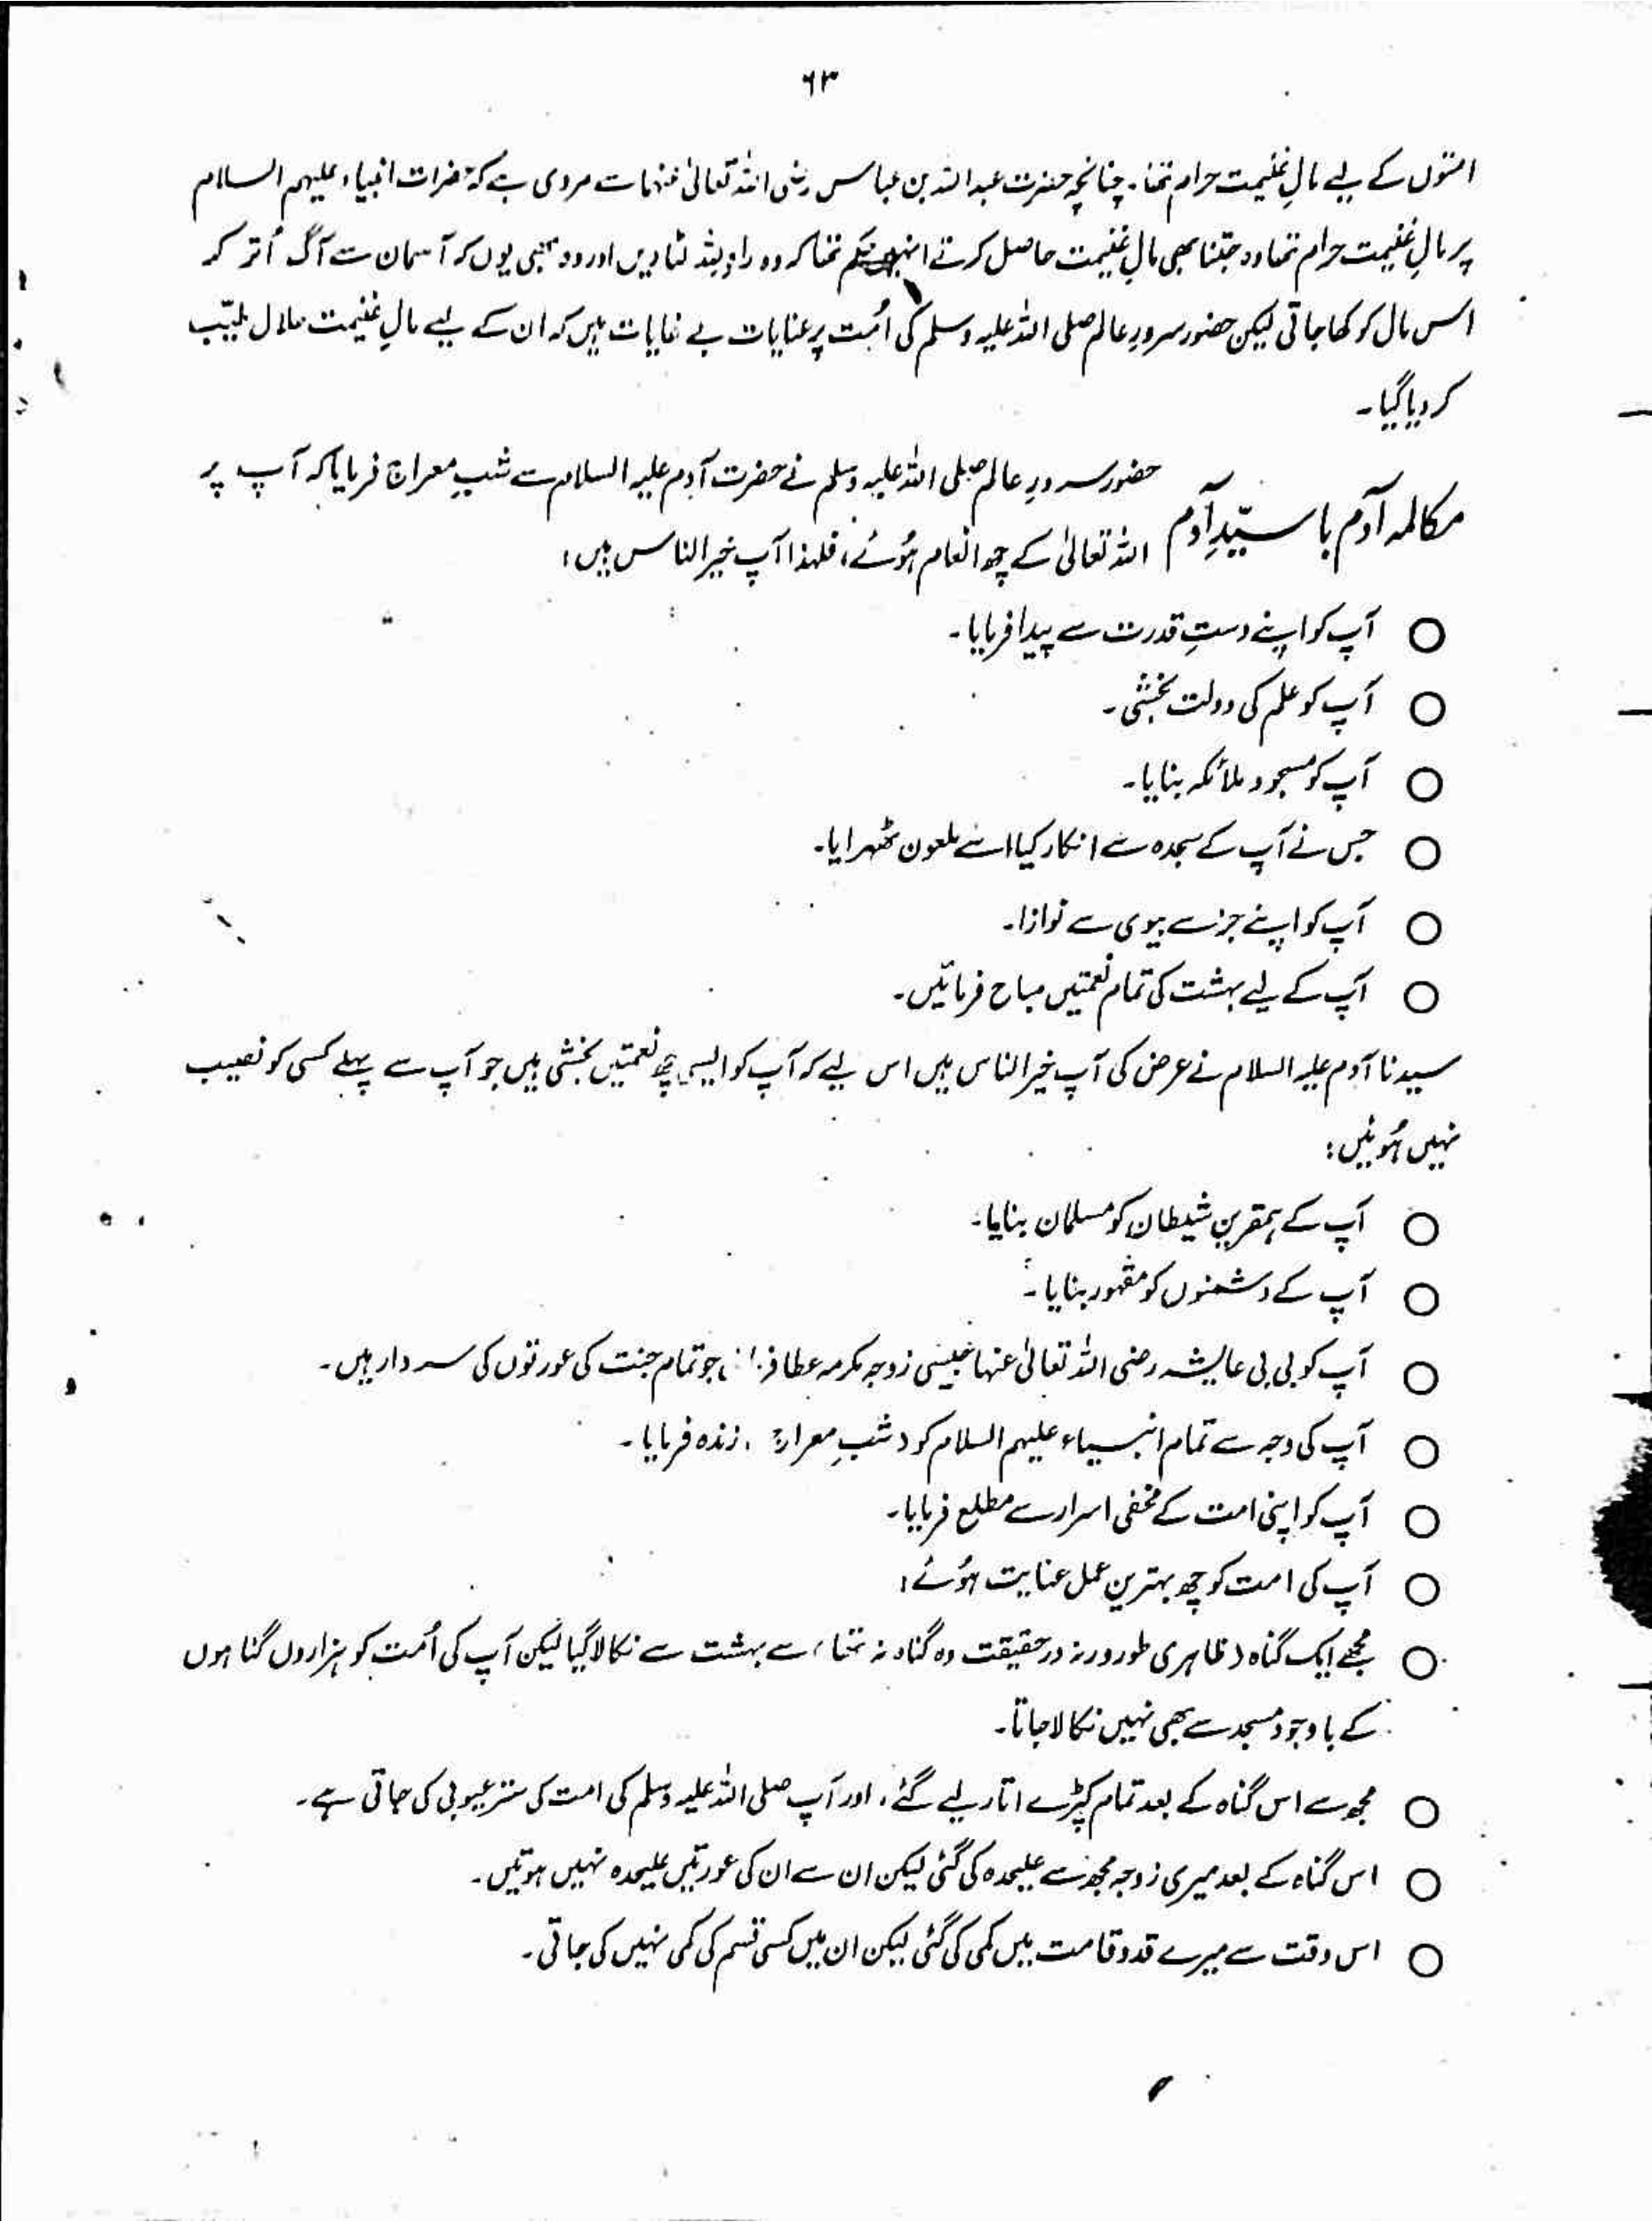 ۶۳
امتوں کے لیے مالِ غنیمت حرام تھا۔ چنانچہ حضرت عبد اللہ بن عباس رضی اللہ تعالیٰ عنہما سے مروی ہے کہ حضرات انبیاء علیہم السلام
پر مالِ غنیمت حرام تھا وہ جتنا بھی مالِ غنیمت حاصل کرتے انہیں حکم تھا کہ وہ راہِ للہ لٹا دیں اور وہ بھی یوں کہ آسمان سے آگ اُتر کر
اس مال کو کھا جاتی لیکن حضور سرورِ عالم صلی اللہ علیہ وسلم کی اُمت پر عنایات بے غایات ہیں کہ ان کے لیے مالِ غنیمت حلال طیّب
کر دیا گیا۔
مکالمہ آدم با سیّدِ آدم حضور سرورِ عالم صلی اللہ علیہ وسلم نے حضرت آدم علیہ السلام سے شبِ معراج فرمایا کہ آپ پر
اللہ تعالیٰ کے چھ انعام ہُوئے، فلہٰذا آپ خیر الناس ہیں:
○ آپ کو اپنے دستِ قدرت سے پیدا فرمایا۔
○ آپ کو علم کی دولت بخشی۔
○ آپ کو مسجود ملائکہ بنایا۔
○ جس نے آپ کے سجدہ سے انکار کیا اسے ملعون ٹھہرایا۔
○ آپ کو اپنے جزسے بیوی سے نوازا۔
○ آپ کے لیے بہشت کی تمام نعمتیں مباح فرمائیں۔
سیدنا آدم علیہ السلام نے عرض کی آپ خیر الناس ہیں اس لیے کہ آپ کو ایسی چھ نعمتیں بخشی ہیں جو آپ سے پہلے کسی کو نصیب
نہیں ہُوئیں:
○ آپ کے ہمقرین شیطان کو مسلمان بنایا۔
○ آپ کے دشمنوں کو مقہور بنایا۔
○ آپ کو بی بی عایشہ رضی اللہ تعالیٰ عنہا جیسی زوجہ مکرمہ عطا جو تمام جنت کی عورتوں کی سردار ہیں۔
○ آپ کی وجہ سے تمام انبیاء علیہم السلام کو (شبِ معراج) زندہ فرمایا۔
○ آپ کو اپنی امت کے مخفی اسرار سے مطلع فرمایا۔
○ آپ کی امت کو چھ بہترین عمل عنایت ہُوئے:
○ مجھے ایک گناہ (ظاہری طور ورنہ درحقیقت وہ گناہ نہ تھا) سے بہشت سے نکالا گیا لیکن آپ کی اُمت کو ہزاروں گناہوں
کے باوجود مسجد سے بھی نہیں نکالا جاتا۔
○ مجھ سے اس گناہ کے بعد تمام کپڑے اتار لیے گئے، اور آپ صلی اللہ علیہ وسلم کی امت کی ستر عیوبی کی جاتی ہے۔
○ اس گناہ کے بعد میری زوجہ مجھ سے علیحدہ کی گئی لیکن ان سے ان کی عورتیں علیحدہ نہیں ہوتیں۔
○ اس وقت سے میرے قد و قامت میں کمی کی گئی لیکن ان میں کسی قسم کی کمی نہیں کی جاتی۔